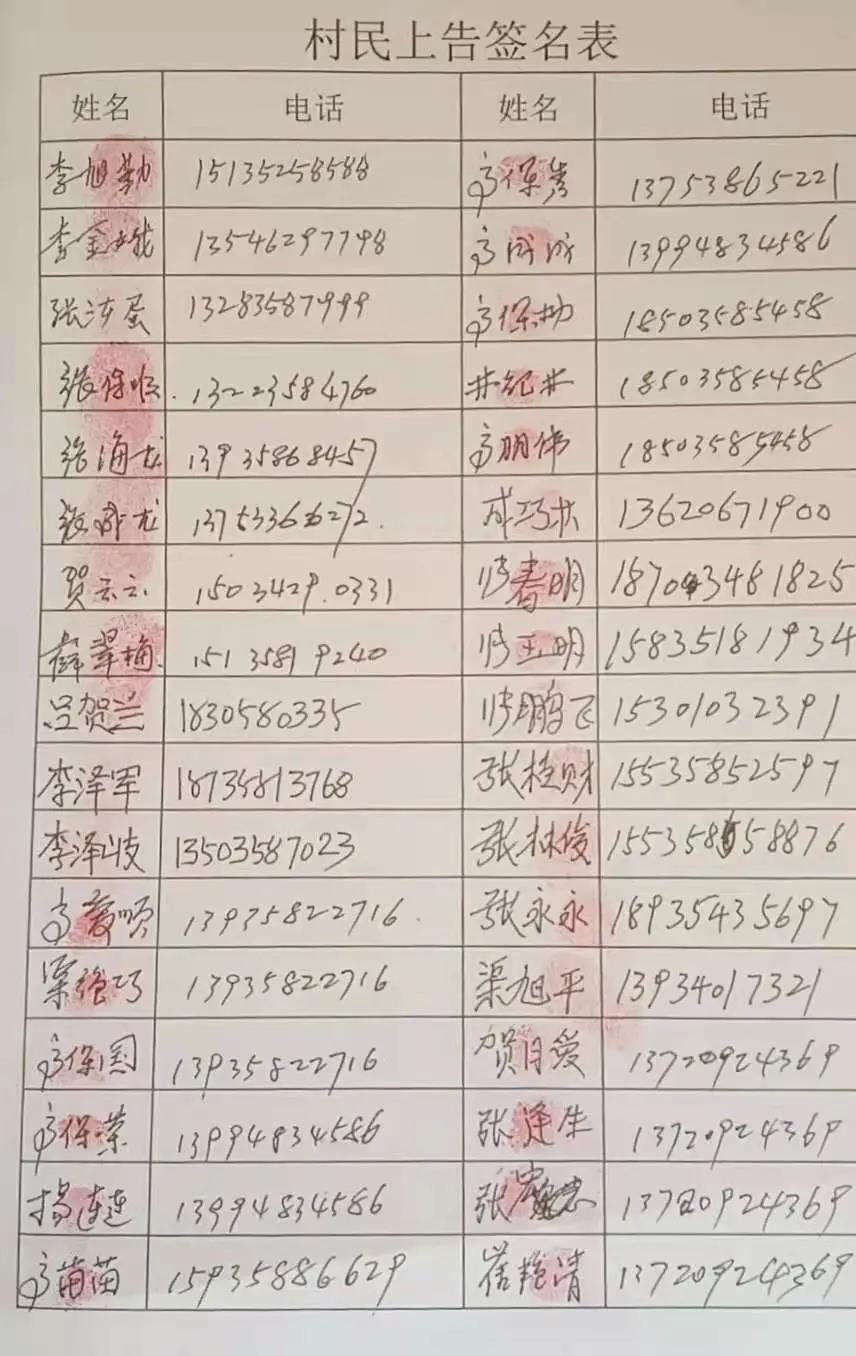 村民上告签名表
姓名 电话 姓名 电话
李旭勤 15135258588 高保秀 13753865221
李金娥 13546297798 高成成 13994834586
张海蛋 13283587999 高保 18503585458
张保顺 13223584760 18503585458
张海龙 13935868457 高明伟 18503585458
张成龙 成巧 13620671900
贺云云 15034290331 春明 18704481825
薛翠梅 15135819240 玉明 15835181934
吕贺兰 1830580335 鹏飞 15301032391
李泽军 18735813768 张桂财 15535852597
李泽岐 13503587023 张林俊 15535858876
高爱顺 13935822716 张永永 18935435697
渠艳巧 13935822716 渠旭平 13934017321
高保国 13935822716 贺月爱 13720924369
高保荣 13994834586 张逢生 13720924369
杨连连 13994834586 张 13720924369
高苗苗 15935886629 崔艳清 13720924369